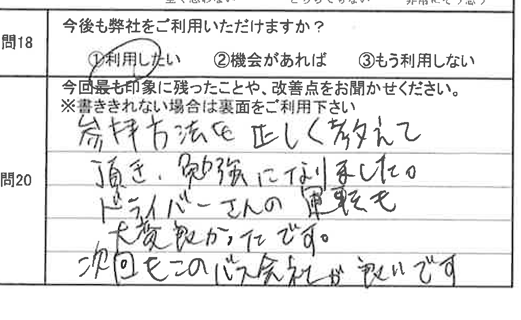 問18
今後も弊社をご利用いただけますか？
①利用したい ②機会があれば ③もう利用しない
問20
今回最も印象に残ったことや、改善点をお聞かせください。
※書ききれない場合は裏面をご利用下さい
参拝方法を正しく教えて
頂き、勉強になりました。
ドライバーさんの運転も
大変良かったです。
次回もこのバス会社が良いです